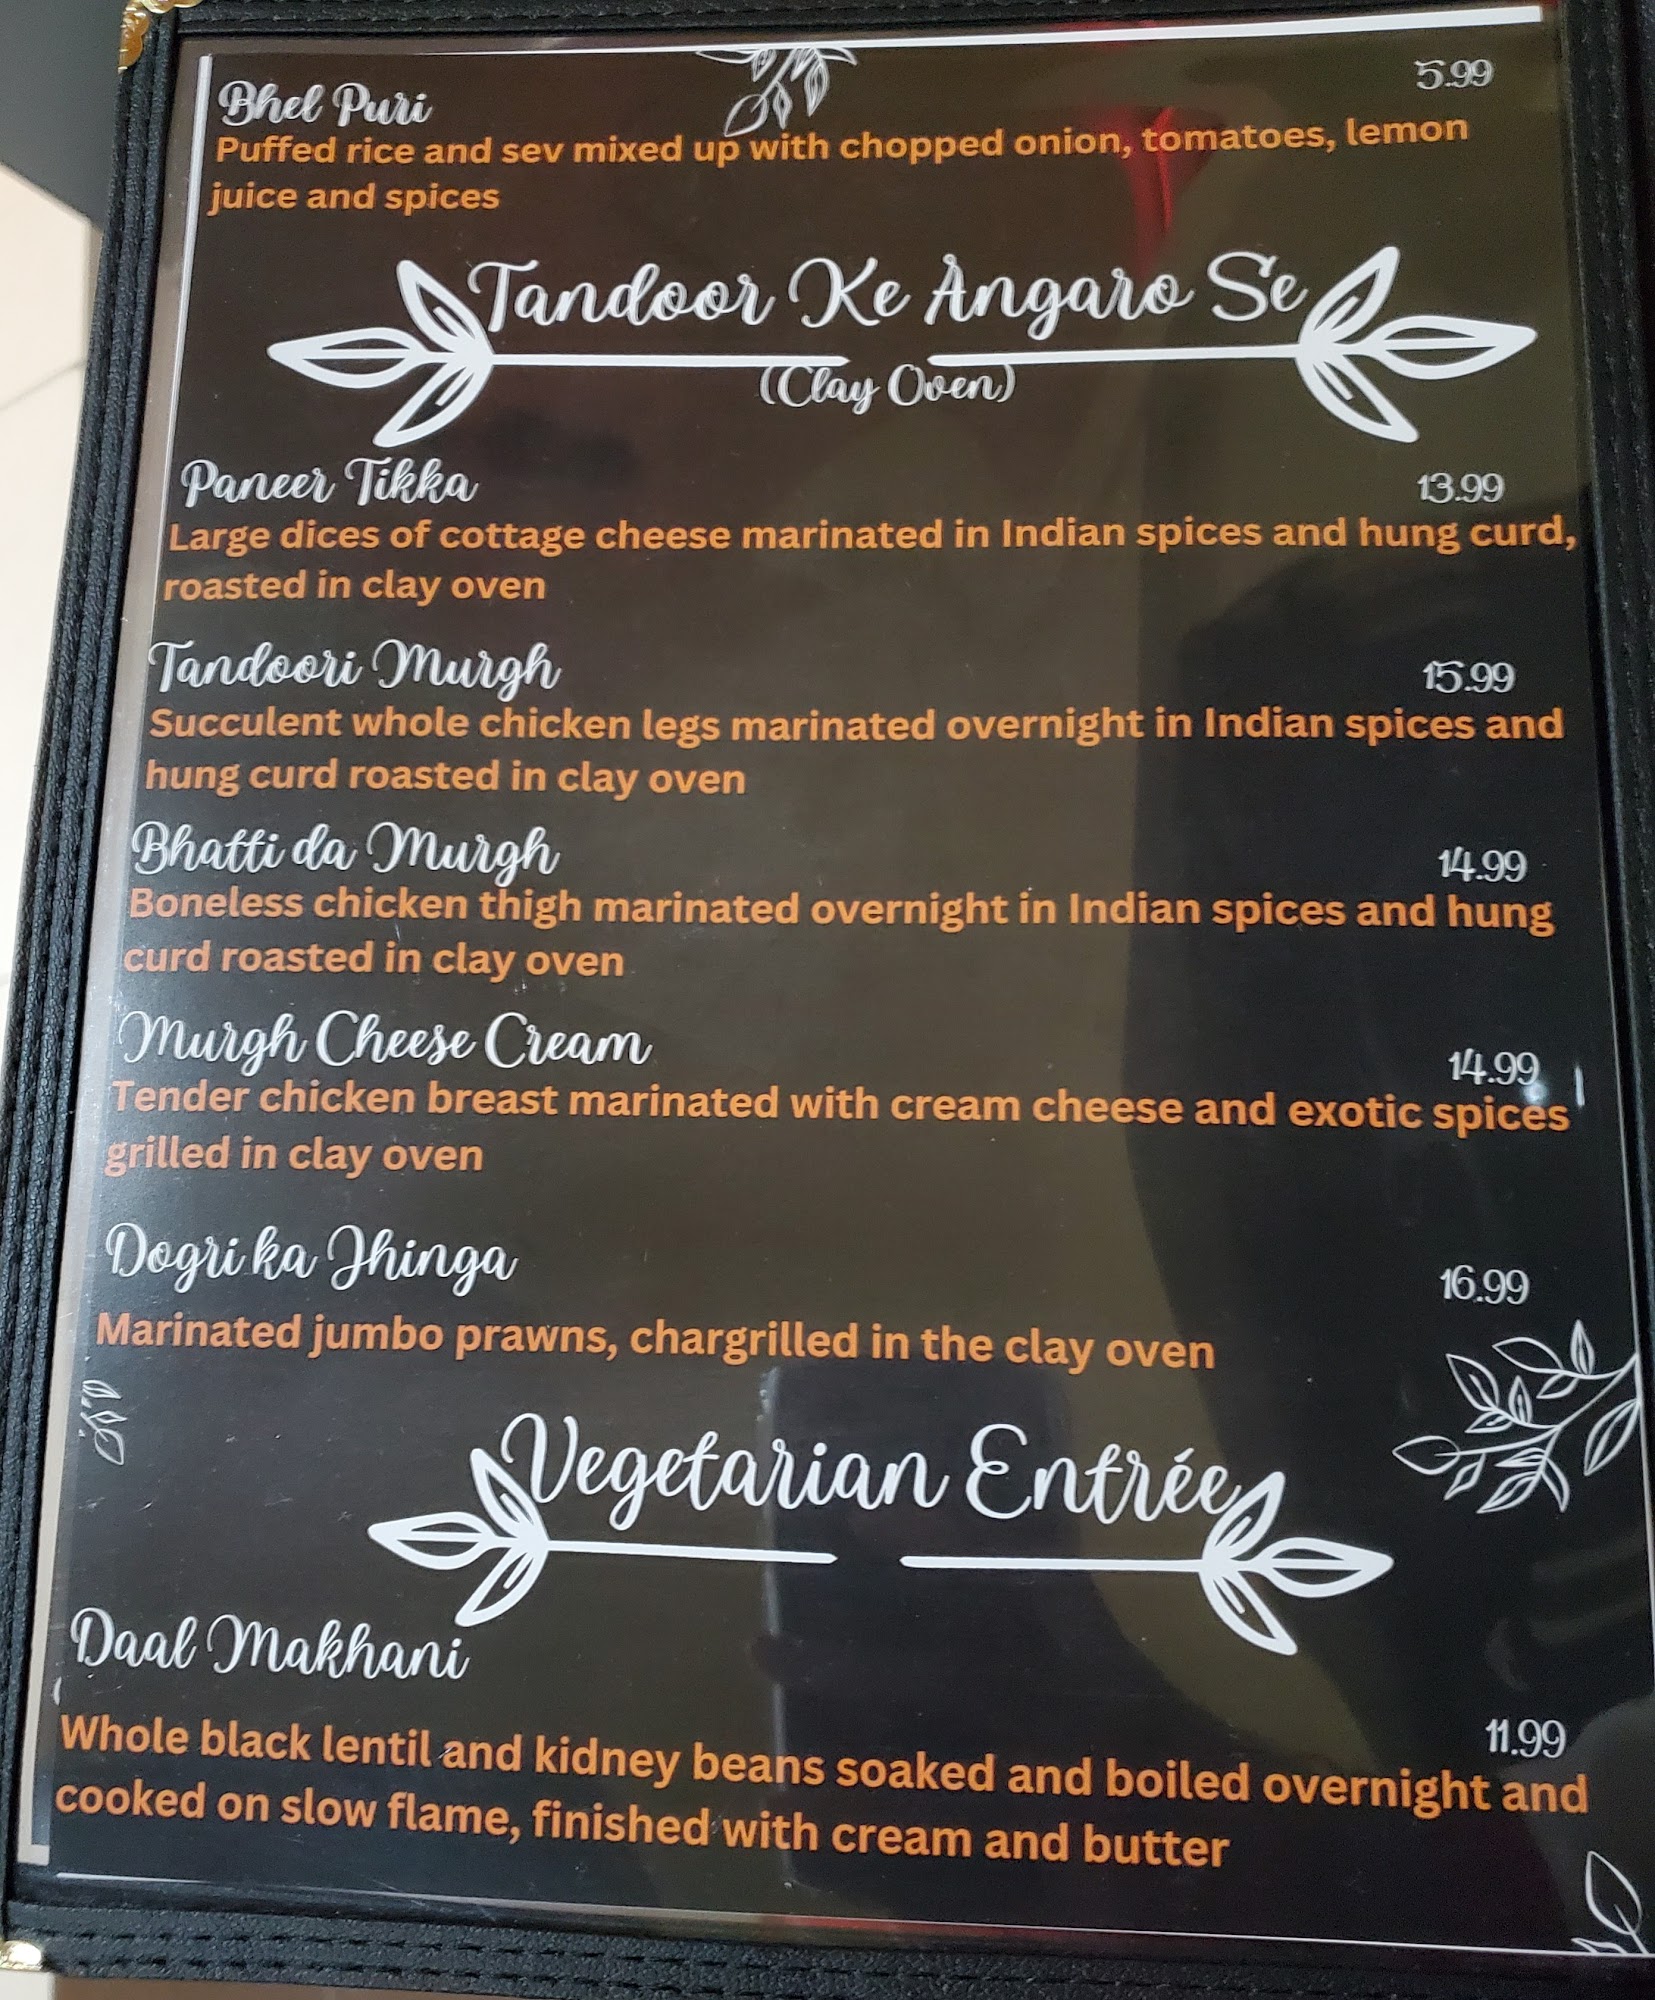 Bhel Puri 5.99
Puffed rice and sev mixed up with chopped onion, tomatoes, lemon
juice and spices
Tandoor Ke Angaro Se
(Clay Oven)
Paneer Tikka 13.99
Large dices of cottage cheese marinated in Indian spices and hung curd,
roasted in clay oven
Tandoori Murgh 15.99
Succulent whole chicken legs marinated overnight in Indian spices and
hung curd roasted in clay oven
Bhatti da Murgh 14.99
Boneless chicken thigh marinated overnight in Indian spices and hung
curd roasted in clay oven
Murgh Cheese Cream 14.99
Tender chicken breast marinated with cream cheese and exotic spices
grilled in clay oven
Dogri ka Jhinga 16.99
Marinated jumbo prawns, chargrilled in the clay oven
Vegetarian Entrée
Daal Makhani 11.99
Whole black lentil and kidney beans soaked and boiled overnight and
cooked on slow flame, finished with cream and butter